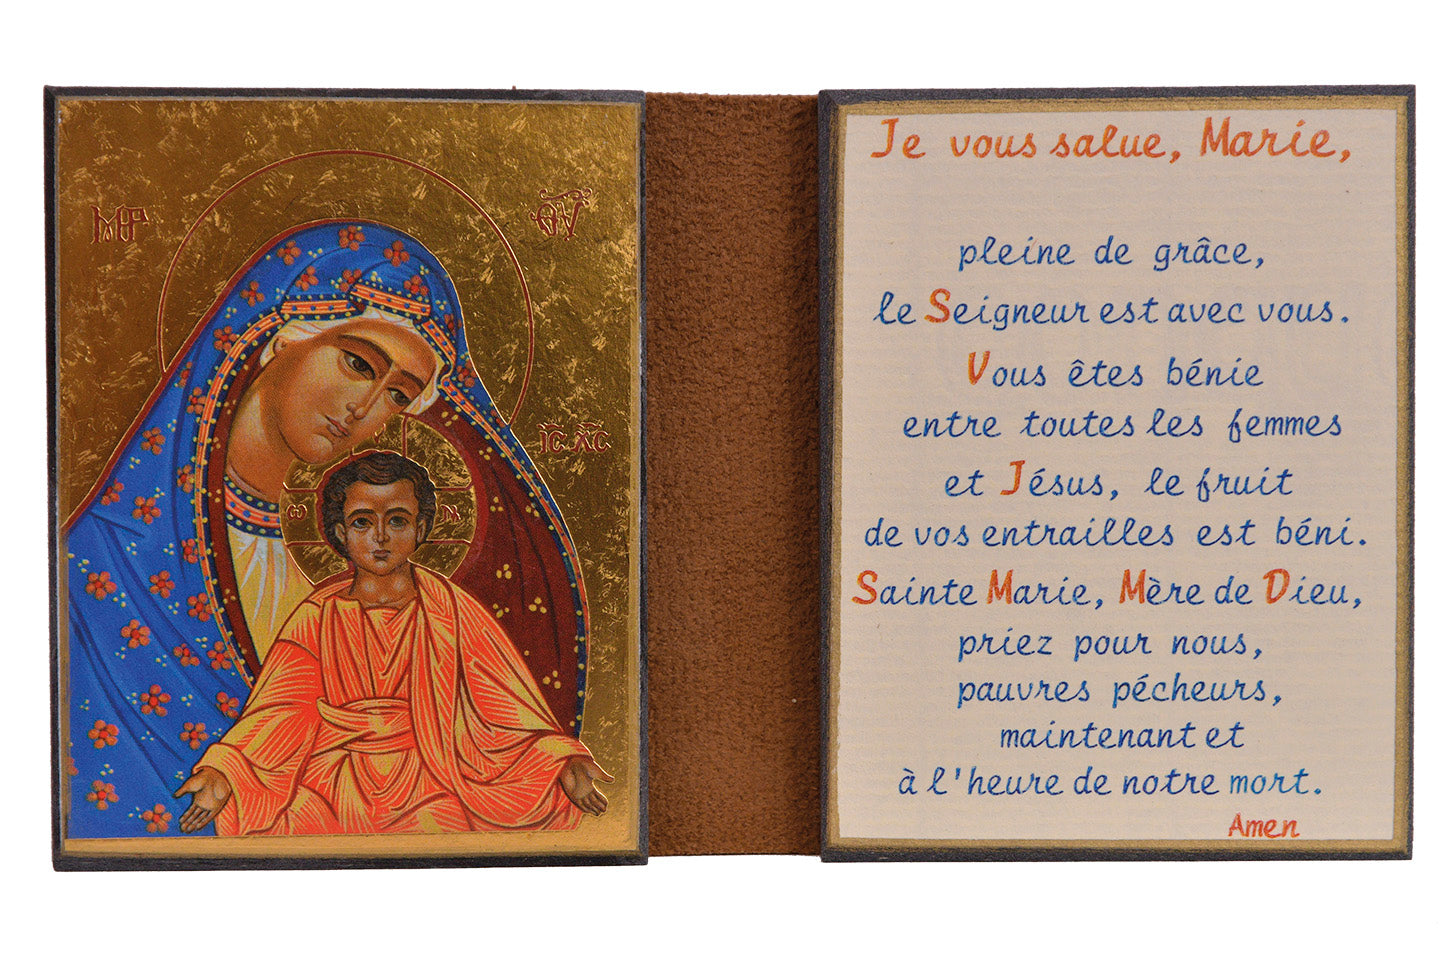 ΜΡ ΘΥ
IC XC
Ω Ν
Je vous salue, Marie,
pleine de grâce,
le Seigneur est avec vous.
Vous êtes bénie
entre toutes les femmes
et Jésus, le fruit
de vos entrailles est béni.
Sainte Marie, Mère de Dieu,
priez pour nous,
pauvres pécheurs,
maintenant et
à l'heure de notre mort.
Amen